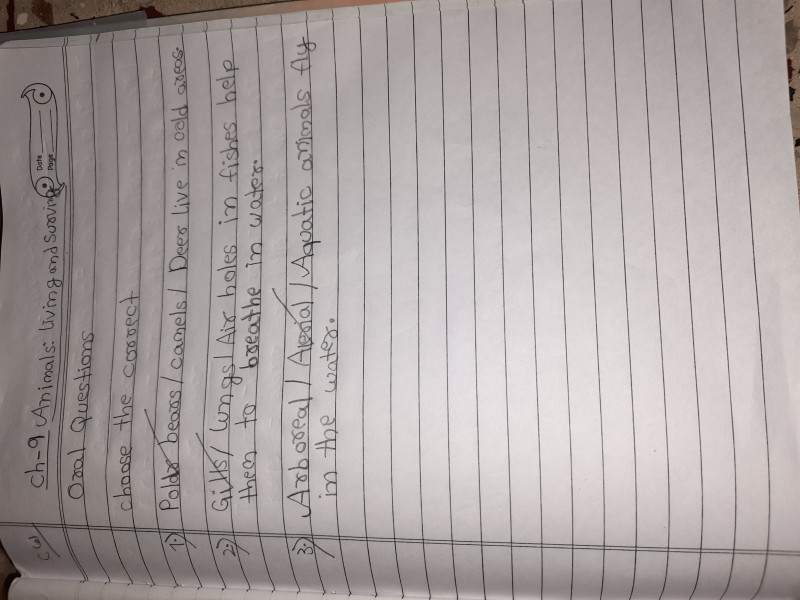 C.W
Date
Page
Ch-9 Animals: living and surving
Oral Questions
choose the correct
1) Polar bears / camels / Deer live in cold areas.
2) Gills / lungs / Air holes in fishes help
them to breathe in water.
3) Arboreal / Aterial / Aquatic animals fly
in the water.